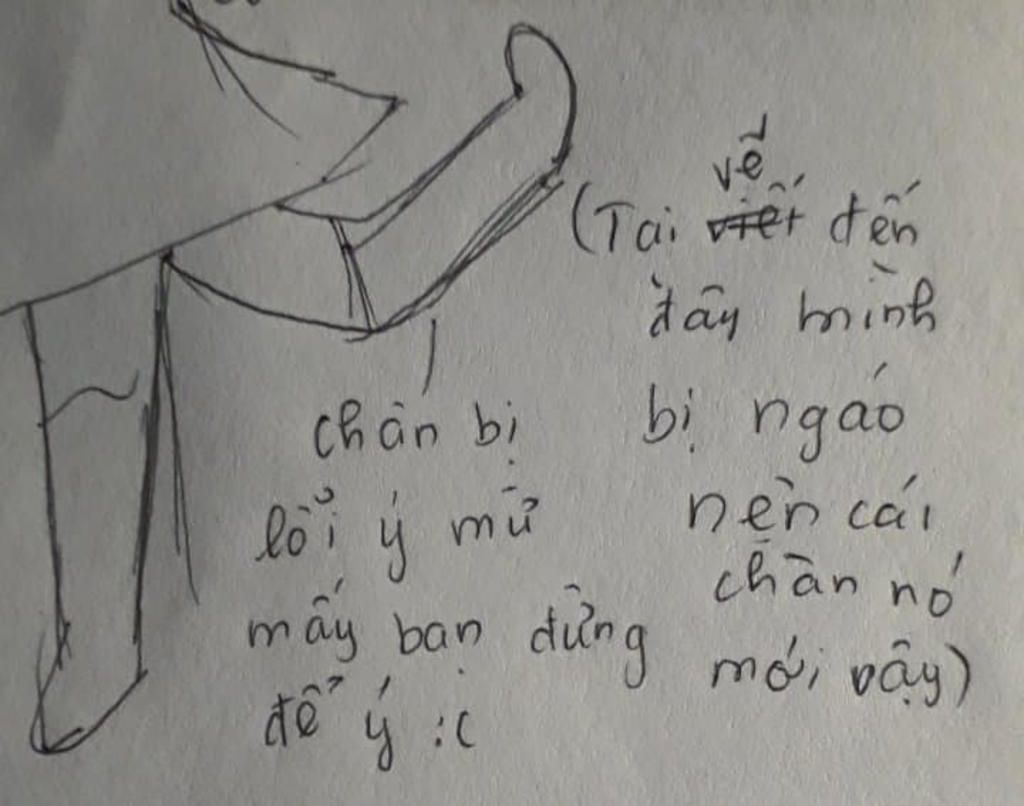 chân bị
lỗi ý mừ
mấy bạn đừng
để ý :(
vẽ
(Tại viết đến
đây mình
bị ngáo
nên cái
chân nó
mới vậy)